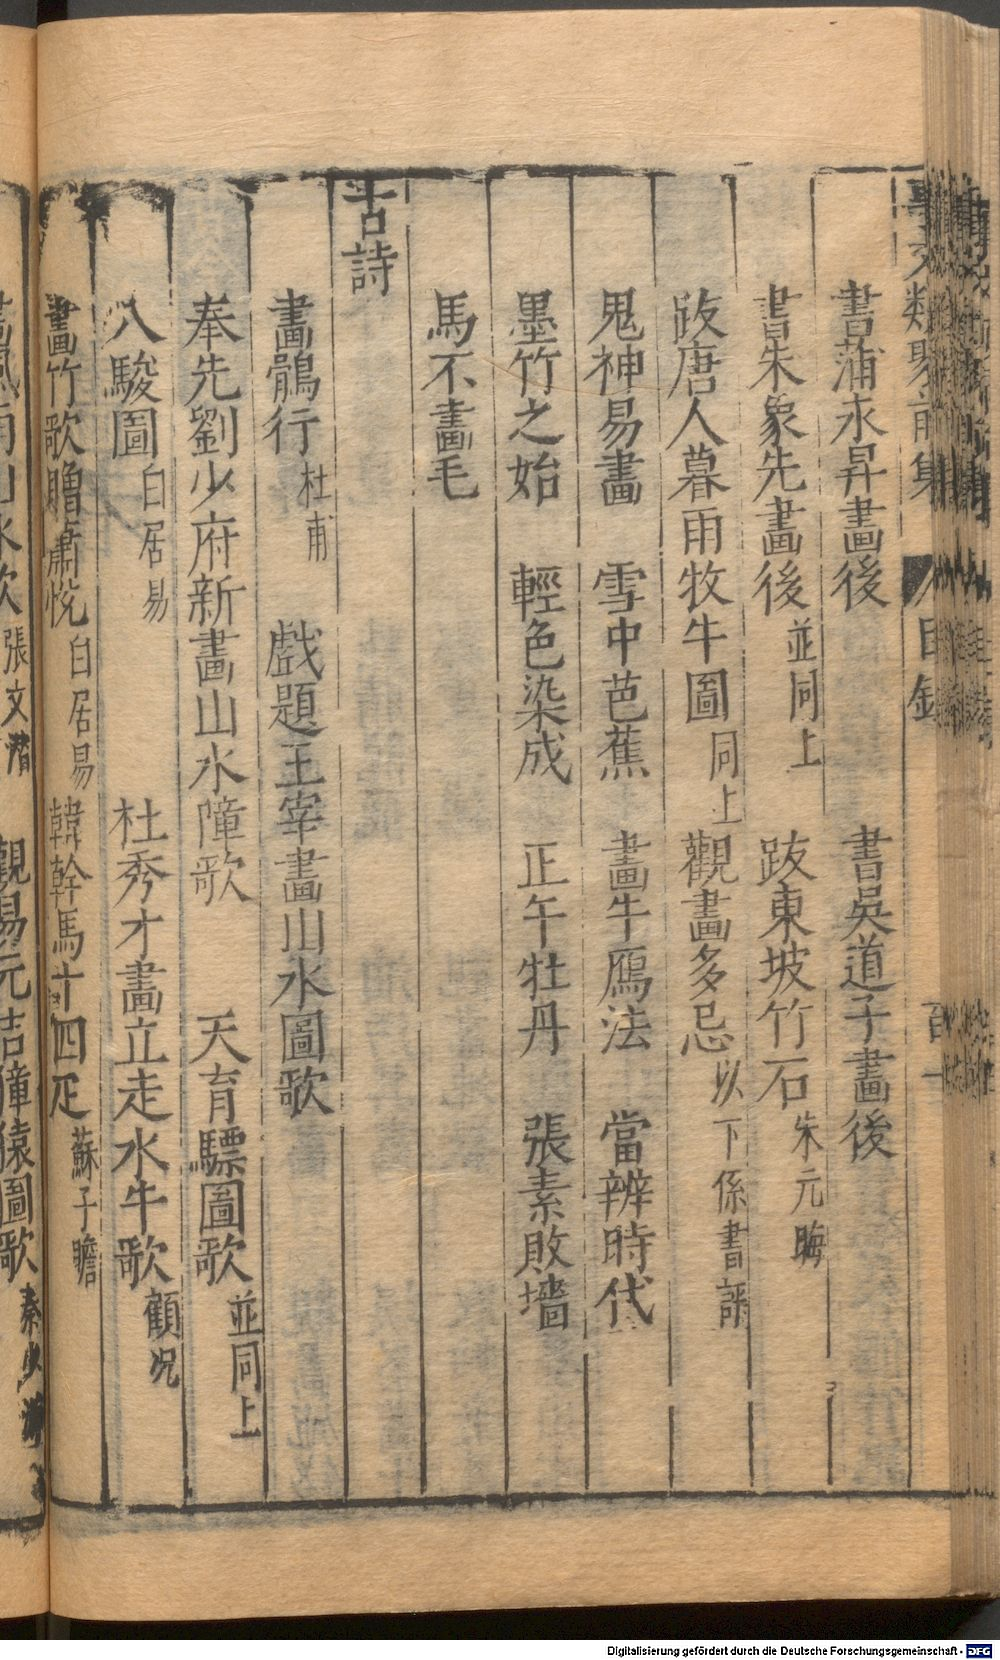 事文類聚前集 目録 百一
書蒲永昇畫後 書吳道子畫後
書朱象先畫後 並同上 跋東坡竹石 朱元晦
跋唐人暮雨牧牛圖 同上 觀畫多忌 以下係書評
鬼神易畫 雪中芭蕉 畫牛鴈法 當辨時代
墨竹之始 輕色染成 正午牡丹 張素敗墻
馬不畫毛
古詩
畫鶻行 杜甫 戲題王宰畫山水圖歌
奉先劉少府新畫山水障歌 天育驃圖歌 並同上
八駿圖 白居易 杜秀才畫立走水牛歌 顧况
畫竹歌贈蕭悅 白居易 韓幹馬十四疋 蘇子瞻
畫風雨山水歌 張文潛 觀易元吉獐猿圖歌 秦少游
Digitalisierung gefördert durch die Deutsche Forschungsgemeinschaft - DFG